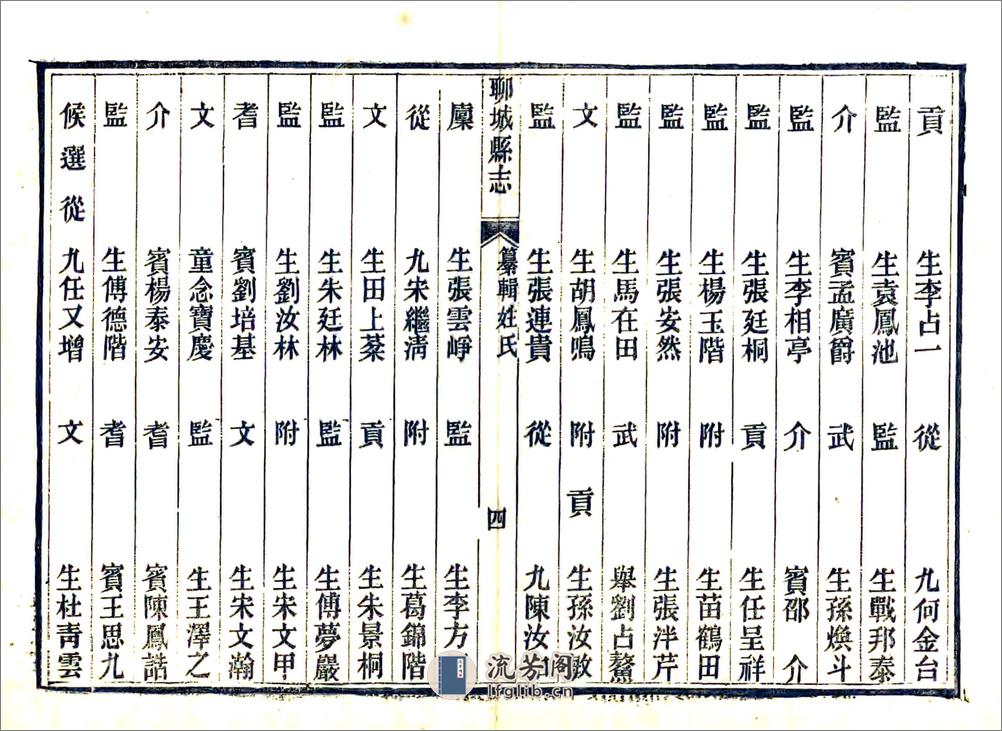 貢生李占一　從九何金台
監生袁鳳池　監生戰邦泰
介賓孟廣爵　武生孫煥斗
監生李相亭　介賓邵介
監生張廷桐　貢生任呈祥
監生楊玉階　附生苗鶴田
監生張安然　附生張泮芹
監生馬在田　武舉劉占鰲
文生胡鳳鳴　附貢生孫汝敬
監生張連貴　從九陳汝
聊城縣志　纂輯姓氏　四
廩生張雲崢　監生李方
從九宋繼清　附生葛錦階
文生田上蔡　貢生朱景桐
監生朱廷林　監生傅夢巖
監生劉汝林　附生宋文甲
耆賓劉培基　文生宋文瀚
文童念寶慶　監生王澤之
介賓楊泰安　耆賓陳鳳誥
監生傅德階　耆賓王思九
候選從九任又增　文生杜青雲
流芳阁
lfglib.cn